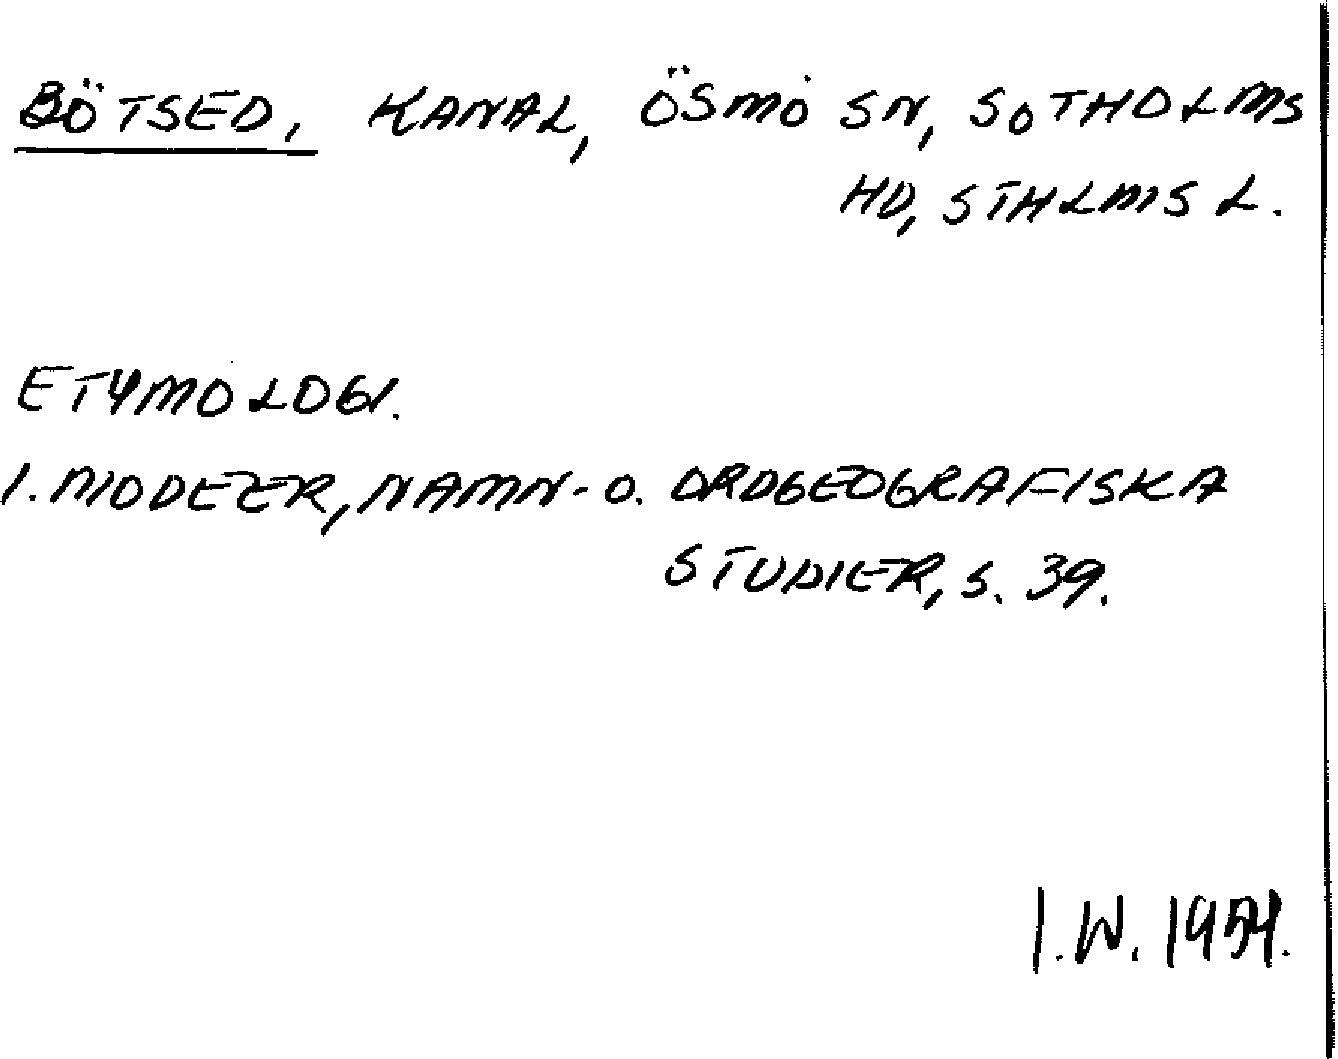 BÖTSED, KANAL, ÖSMO SN, SOTHOLMS
HD, STHLMS L.
ETYMOLOGI.
I. MODEER, NAMN- O. ORDGEOGRAFISKA
STUDIER, S. 39.
I.W.